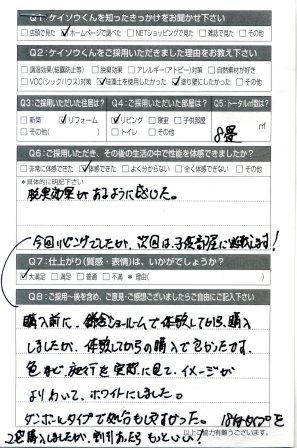 Q1：ケイソウくんを知ったきっかけをお聞かせ下さい
□店頭で見た ☑ホームページで調べた □NETショッピングで見た □雑誌で見た □その他
Q2：ケイソウくんをご採用いただきました理由をお教え下さい
□調湿効果(結露防止等) □脱臭効果 □アレルギー(アトピー)対策 □自然素材が好き
□VOC(シックハウス)対策 ☑珪藻土を使用したかった ☑塗り壁にしたかった □その他
Q3：ご採用いただいた住居は？ Q4：ご採用いただいた場所は？ Q5：トータル㎡数は？
□新築 ☑リフォーム ☑リビング □寝室 □子供部屋
□その他( ) □トイレ □その他( ) 8畳 ㎡
Q6：ご採用いただき、その後の生活の中で性能を体感できましたか？
□非常に体感できた ☑体感できた □よく分からない □全く体感できない □その他
*具体的に明記下さい
脱臭効果があるように感じた。
今回リビングでしたが、次回は子供部屋に挑戦します！
Q7：仕上がり(質感・表情)は、いかがでしょうか？
☑大満足 □満足 □普通 □不満 *理由( )
Q8：ご採用〜後を含め、ご意見・ご感想ございましたらご自由にご記入下さい
購入前に、鎌倉ショールームで体験してから購入
しましたが、体験してからの購入で良かったです。
色など、施行を実際に見て、イメージが
よりわいて、ホワイトにしました。
ダンボールタイプで処分もしやすかった。18㎏タイプを
2箱購入しましたが、割引あったらもっといい！
以上ご協力有難うございます。